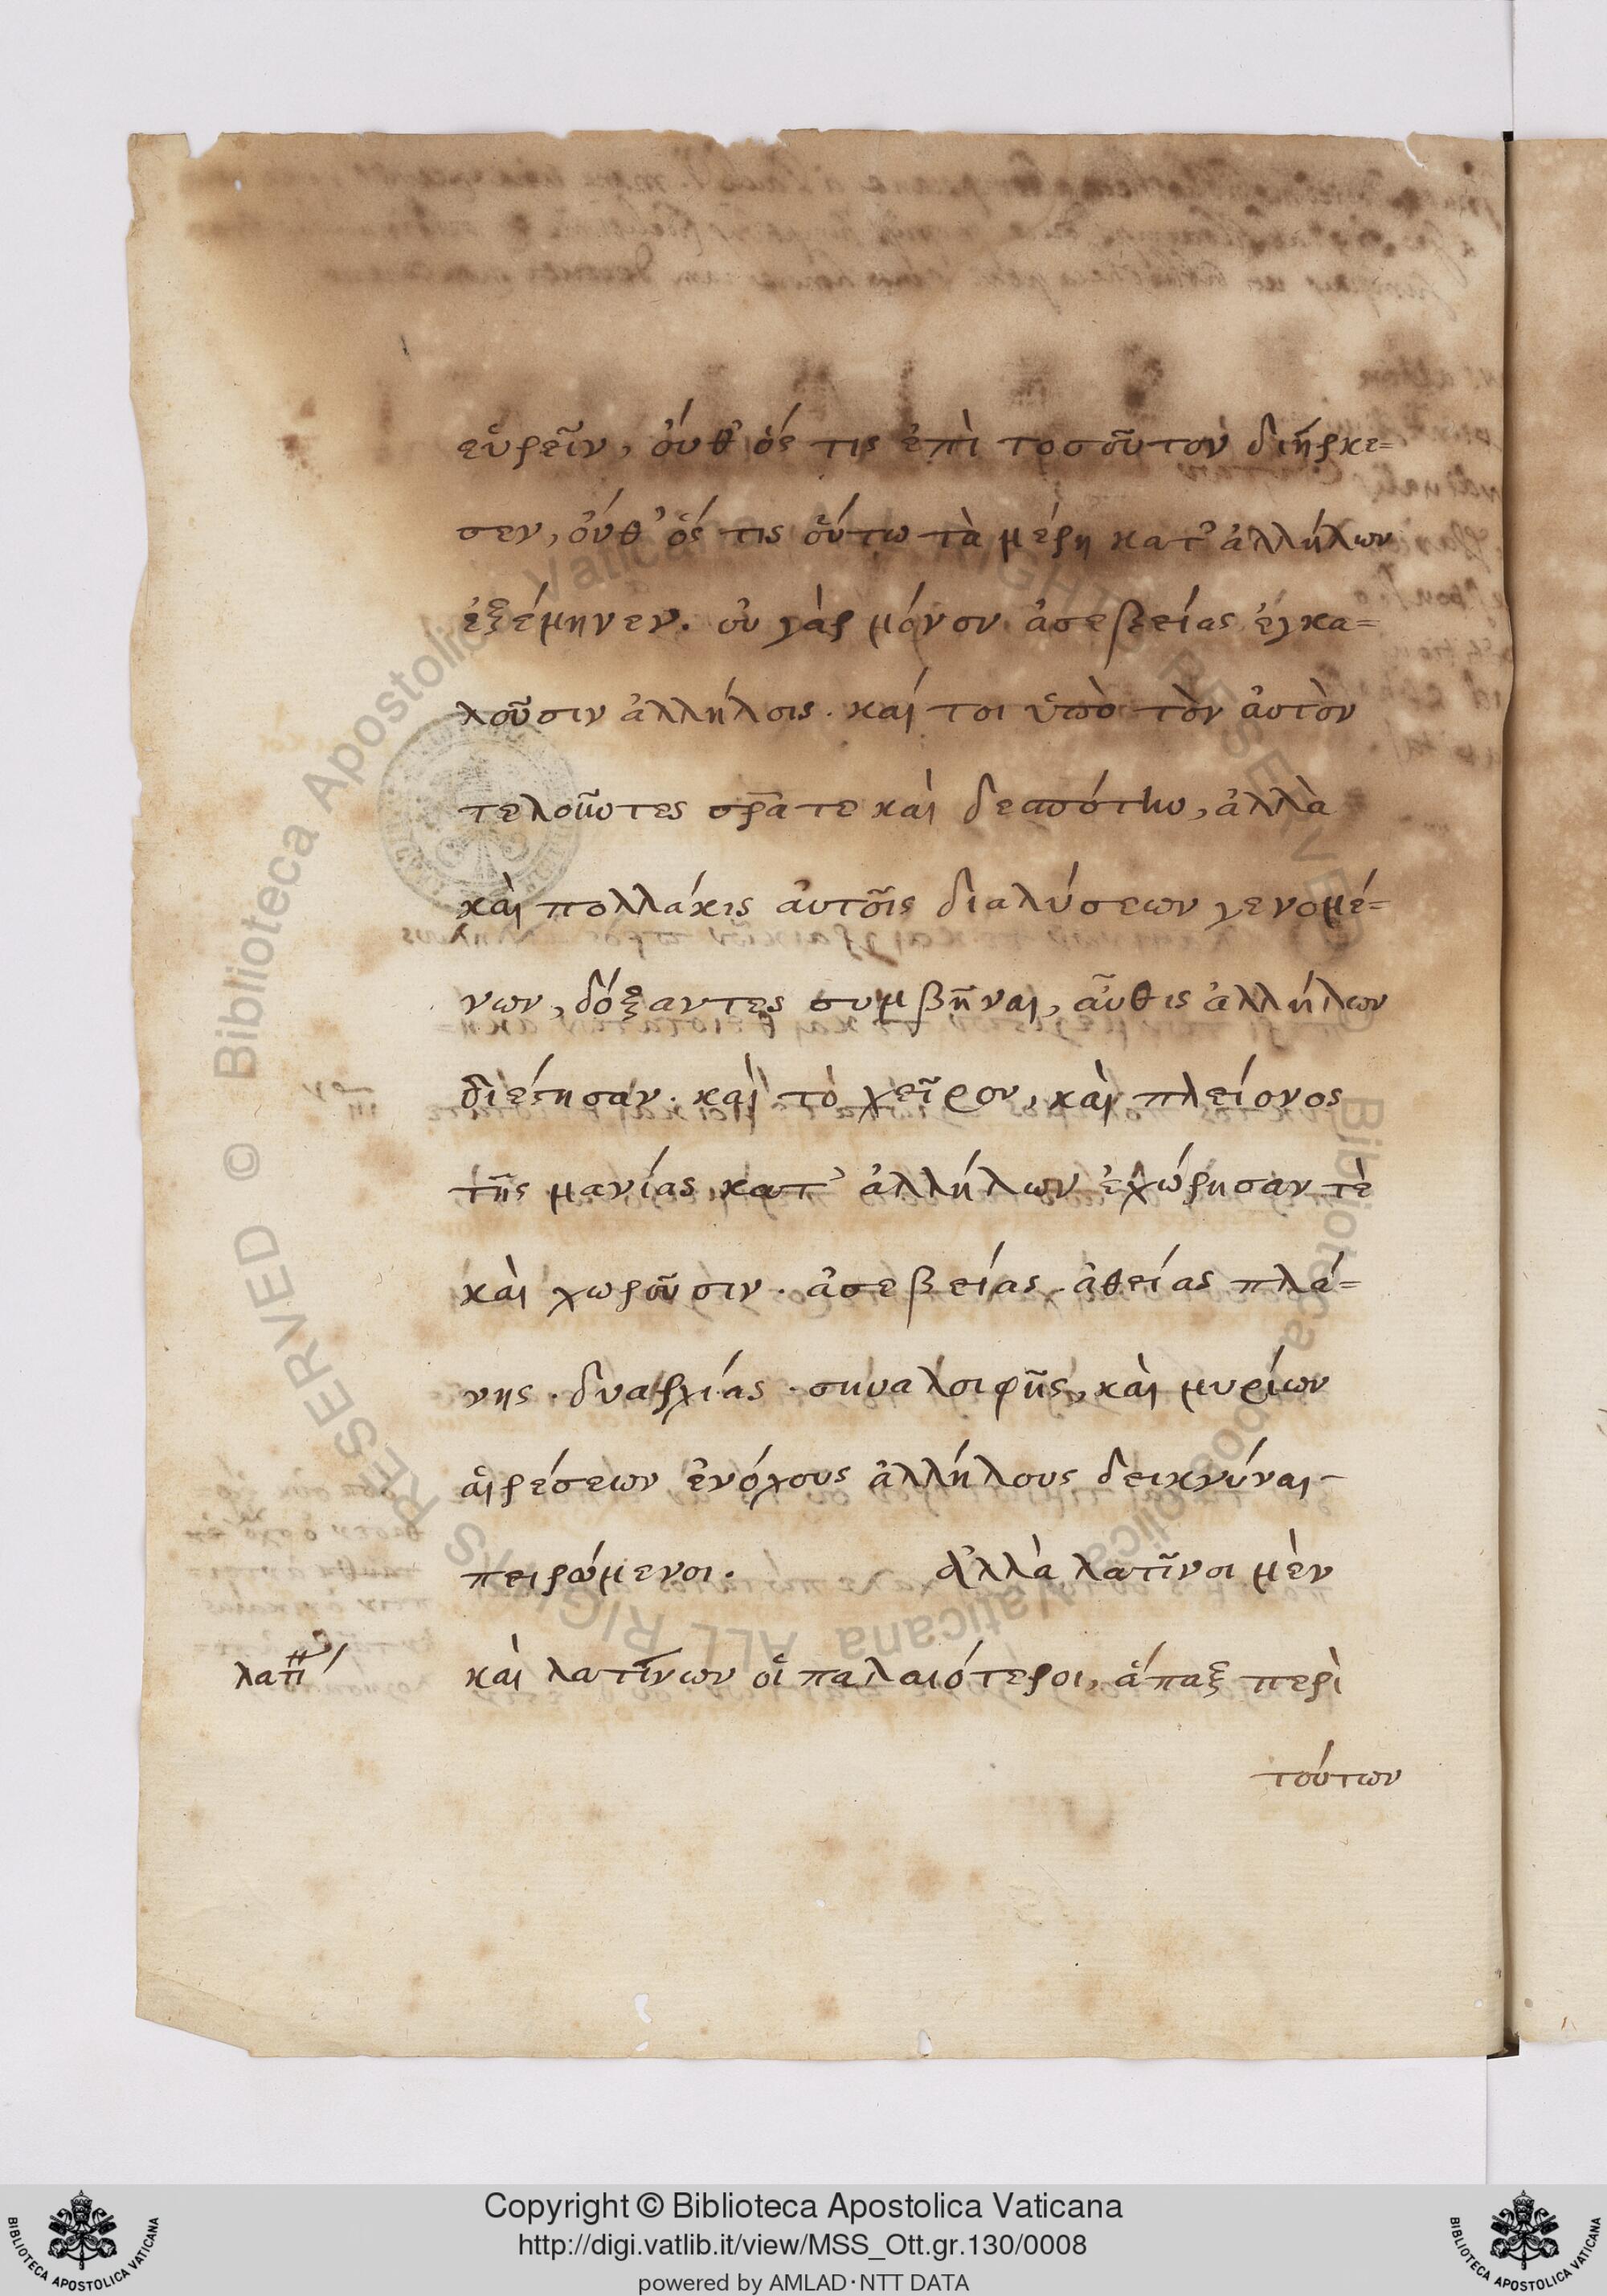 εὑρεῖν, οὔθ' ὅς τις ἐπὶ τοσοῦτον διήρκε=
σεν, οὔθ' ὅς τις οὕτω τὰ μέρη κατ' ἀλλήλων
ἐξέμηνεν. οὐ γὰρ μόνον ἀσεβείας ἐγκα=
λοῦσιν ἀλλήλοις. καί τοι ὑπὸ τὸν αὐτὸν
τελοῦντες καὶ δεσπότην, ἀλλὰ
καὶ πολλάκις αὐτοῖς διαλύσεων γενομέ=
νων, δόξαντες συμβῆναι, αὖθις ἀλλήλων
διέστησαν. καὶ τὸ χεῖρον, καὶ πλείονος
τῆς μανίας κατ' ἀλλήλων ἐχώρησαν τὲ
καὶ χωροῦσιν. ἀσεβείας. ἀθεΐας πλά=
νης. δυαρχίας. συναλοιφῆς, καὶ μυρίων
αἱρέσεων ἐνόχους ἀλλήλους δεικνύναι
πειρώμενοι. ἀλλὰ λατῖνοι μὲν
καὶ λατίνων οἱ παλαιότεροι, ἅπαξ περὶ
τούτων
Copyright © Biblioteca Apostolica Vaticana
http://digi.vatlib.it/view/MSS_Ott.gr.130/0008
powered by AMLAD·NTT DATA
BIBLIOTECA APOSTOLICA VATICANA
BIBLIOTECA APOSTOLICA VATICANA
© Biblioteca Apostolica Vaticana ALL RIGHTS RESERVED
© Biblioteca Apostolica Vaticana ALL RIGHTS RESERVED